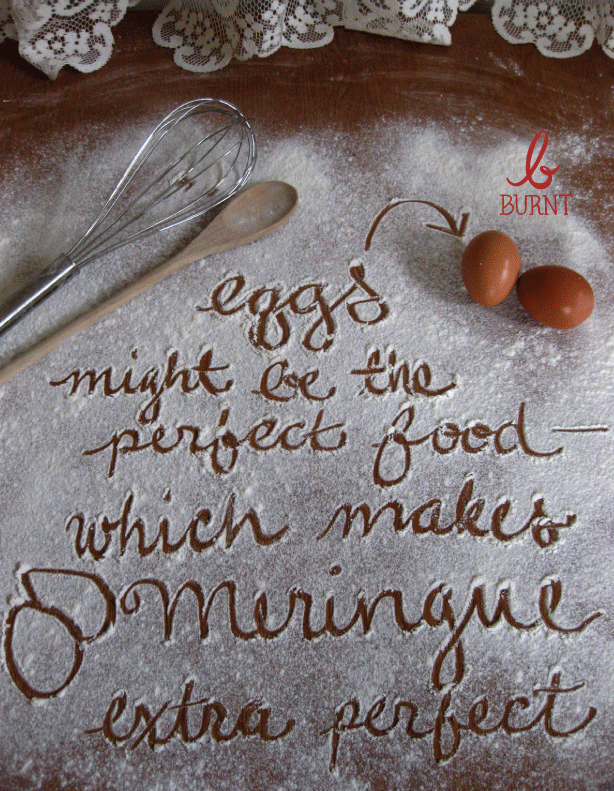 b
BURNT
eggs
might be the
perfect food—
which makes
Meringue
extra perfect